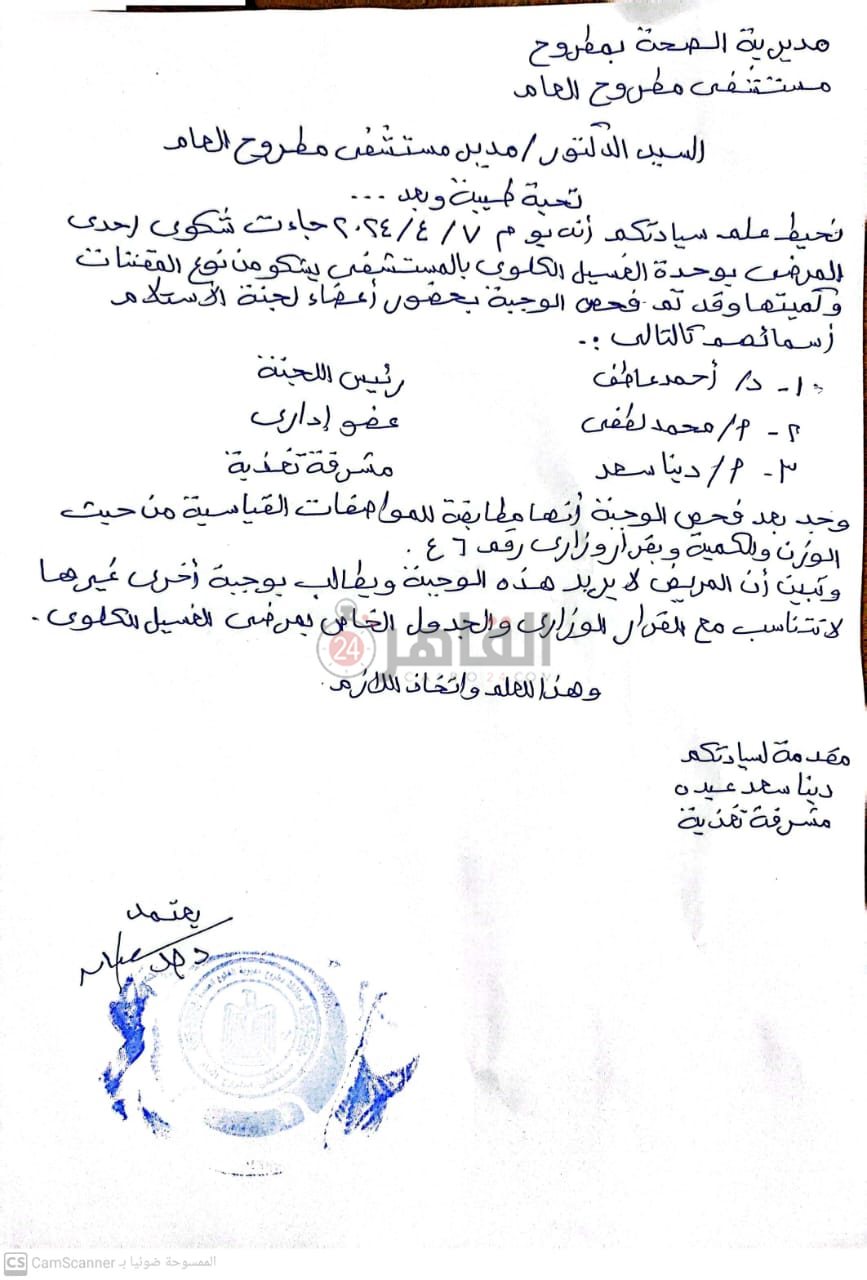 مديرية الصحة بمطروح
مستشفى مطروح العام
السيد الدكتور / مدير مستشفى مطروح العام
تحية طيبة وبعد ...
نحيط علم سيادتكم أنه يوم ٧ / ٤ / ٢٠٢٤ جاءت شكوى إحدى
المرضى بوحدة الغسيل الكلوى بالمستشفى يشكو من نوع المقننات
وكميتها وقد تم فحص الوجبة بحضور أعضاء لجنة الأستلام
أسمائهم كالتالى :-
١- د/ أحمد عاطف رئيس اللجنة
٢- م/ محمد لطفى عضو إدارى
٣- م/ دينا سعد مشرفة تغذية
وجد بعد فحص الوجبة أنها مطابقة للمواصفات القياسية من حيث
الوزن والكمية وبقرار وزارى رقم ٤٦ .
وتبين أن المريض لا يريد هذه الوجبة ويطالب بوجبة أخرى غيرها
لا تتناسب مع القرار الوزارى والجدول الخاص بمرضى الغسيل الكلوى .
القاهرة 24
CAIRO24.COM
وهذا للعلم واتخاذ اللازم .
مقدمة لسيادتكم
دينا سعد عبده
مشرفة تغذية
يعتمد
CS CamScanner الممسوحة ضوئيا بـ